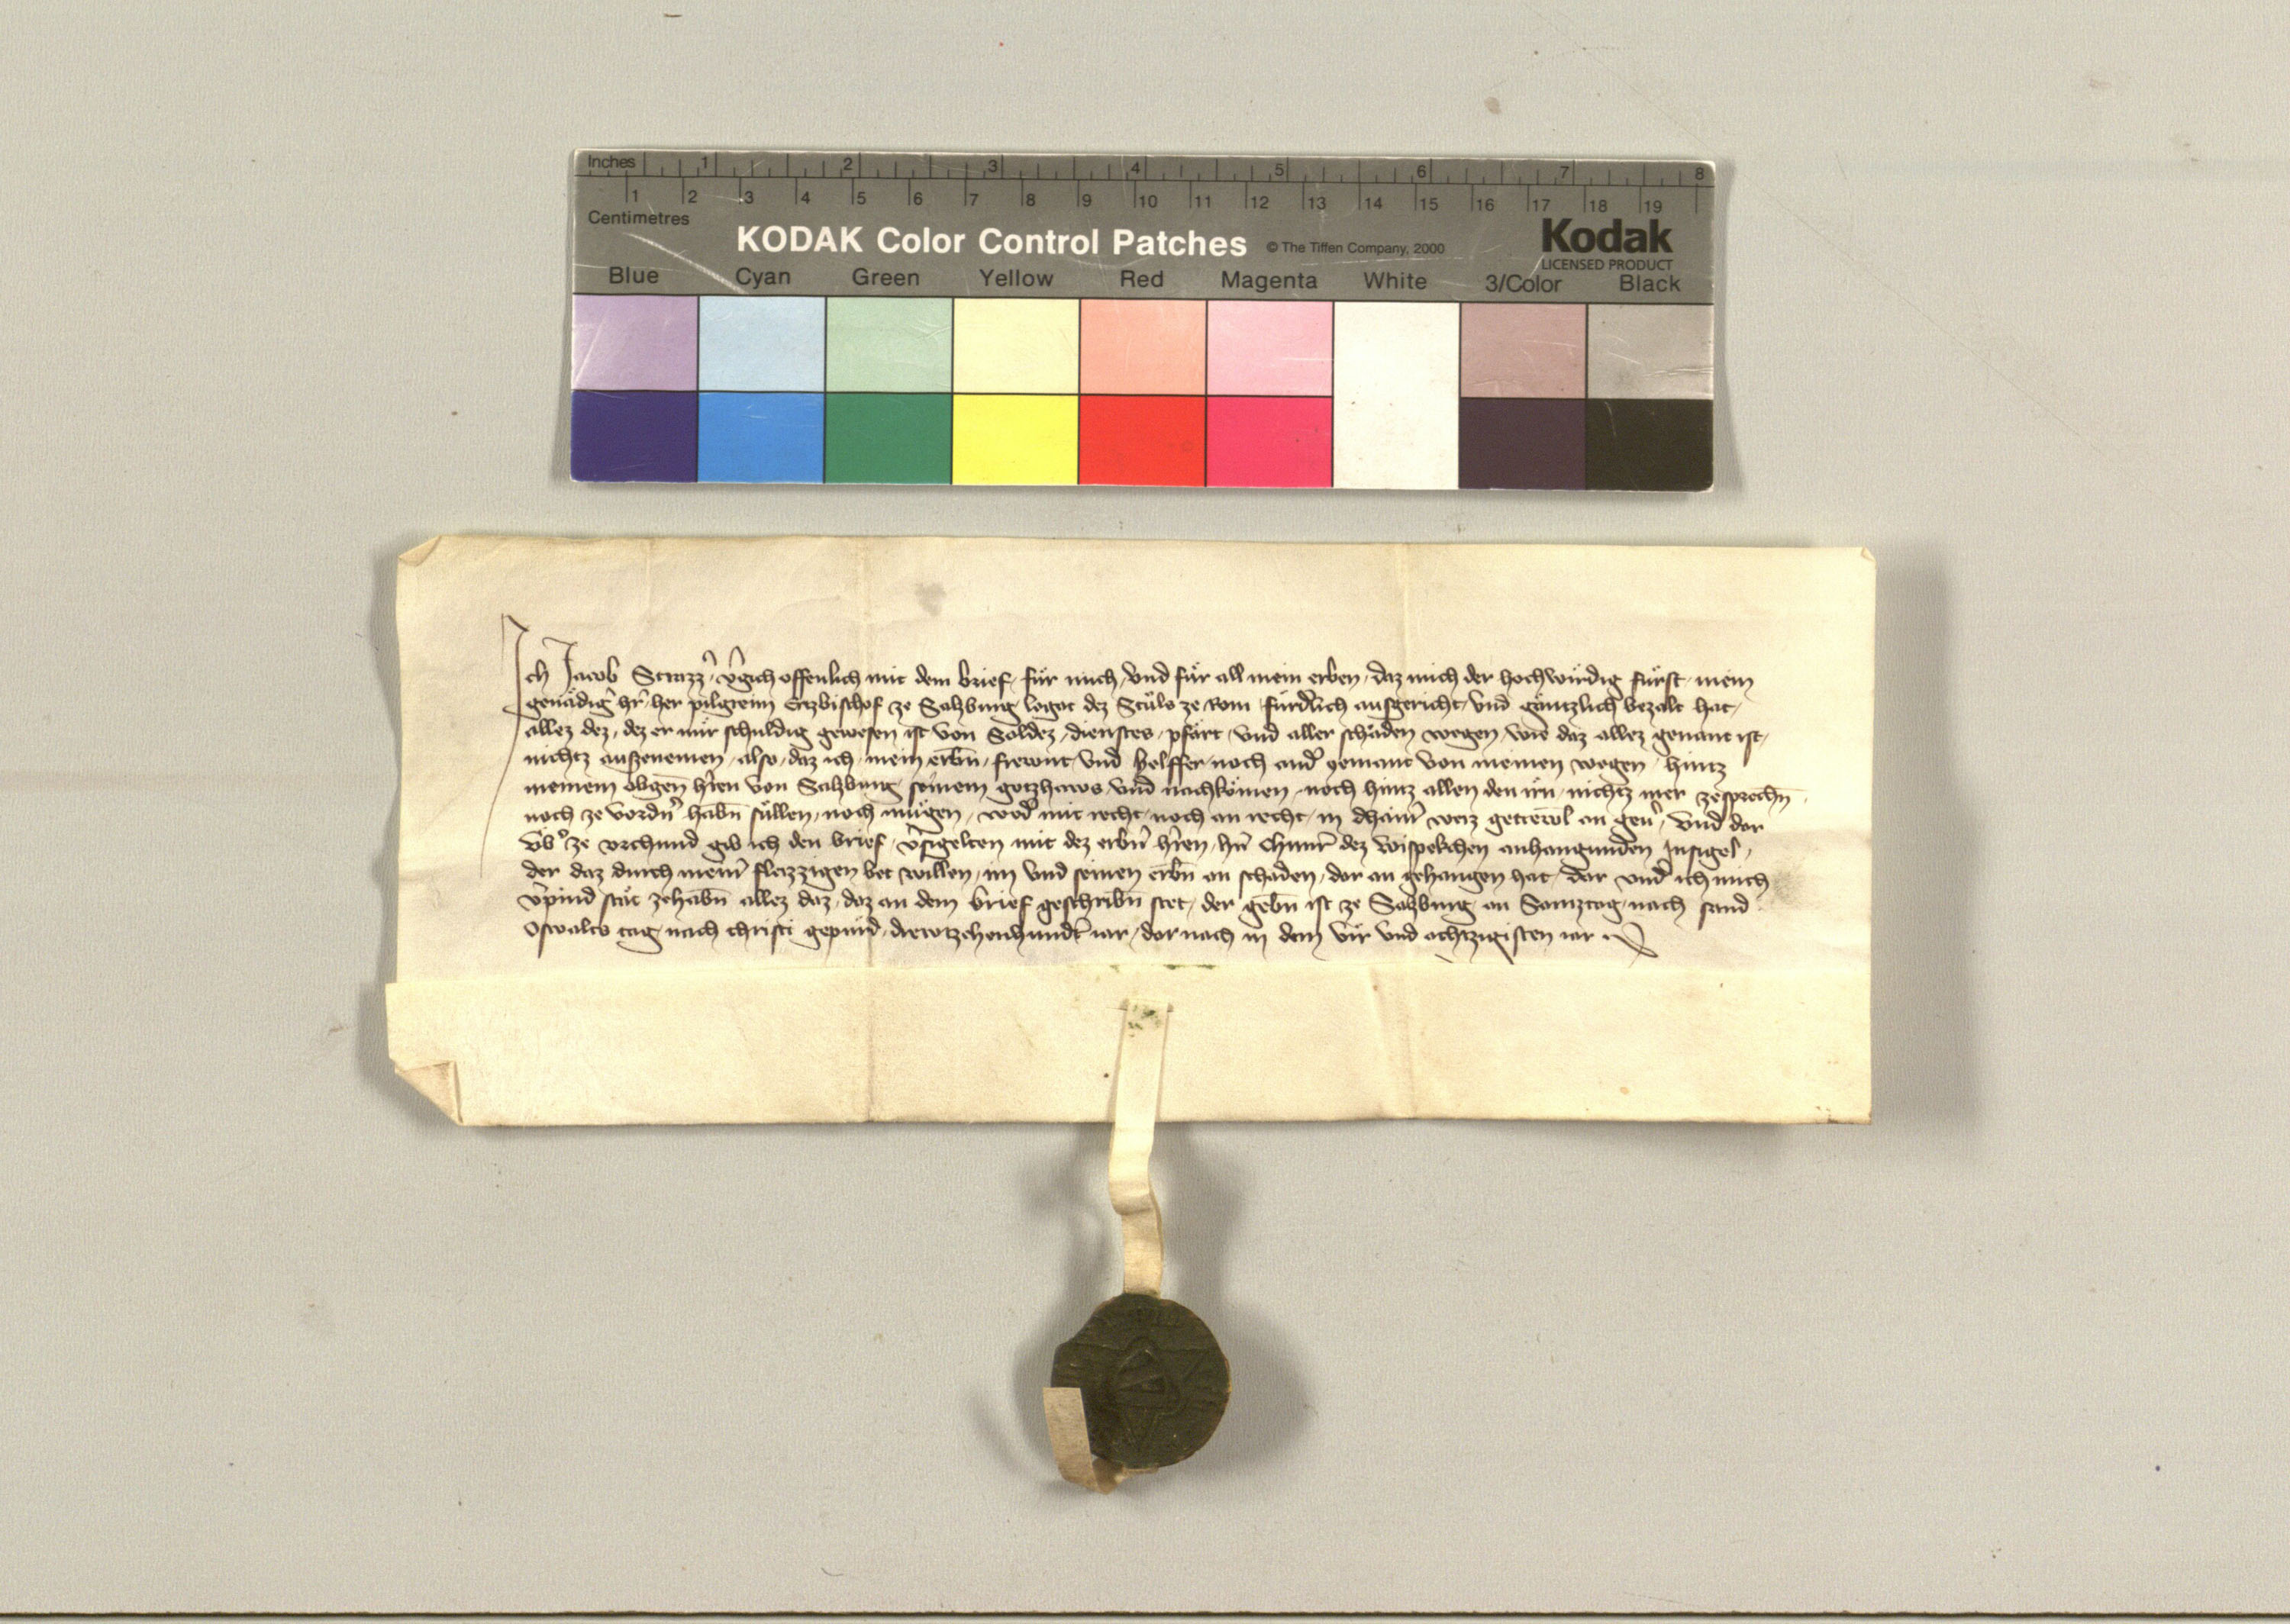 Inches 1 2 3 4 5 6 7 8
1 2 3 4 5 6 7 8 9 10 11 12 13 14 15 16 17 18 19
Centimetres
KODAK Color Control Patches © The Tiffen Company, 2000 Kodak
LICENSED PRODUCT
Blue Cyan Green Yellow Red Magenta White 3/Color Black
Ich Jacob Strazz̉ v̉gich offenlich mit dem brief, für mich, vnd für all mein erben, daz mich der hochwirdig fürst, mein
genädig̉ hr̉, her pilgreim Erzbischof ze Salzburg legat dez Stůls ze Rom fürdlich ausgericht, vnd gäntzlich bezalt hat,
allez dez, dez er mir schuldig gewesen ist von Soldez, dienstes, pfärt, vnd aller schäden wegen, wie daz allez genant ist,
nichtz auszenemen, also, daz ich, mein erbn̄, frewnt, vnd helffer, noch and̉ yemant von meinen wegen, hintz
meinem obgen̄ hr̉en von Salzburg, seinem gotzhaws, vnd nachkömen, noch hintz allen den irn̄, nichtz mer zesprechn̄,
noch ze vordn̉ habn̄ süllen, noch mügen, wed̉ mit recht, noch an recht, in dhain̉ weiz getrewl an geủ, vnd dar
vb̉ ze vrchund gib ich den brief, v̉sigelten mit dez erbn̉ hr̉en, hn̄ Chunr̄ dez Wispekchen anhangunden Insigel,
der daz durch mein̉ fleizzigen bet willen, im vnd seinen erbn̄ an schaden, dar an gehangen hat, dar vnd̉ ich mich
v̉pind stät zehabn̄ allez daz, daz an dem brief geschribn̄ stet, der gebn̄ ist ze Salzburg, an Samztag, nach sand
Oswalts tag, nach christi gepurd, drewtzehenhund̉t iar, dar nach in dem vir vnd achtzigisten iar